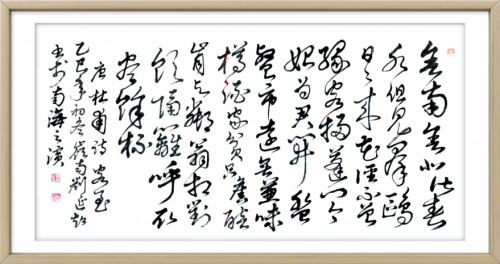 舍南舍北皆春
水但見群鷗
日日來花徑不曾
緣客掃蓬門今
始為君開盤
飧市遠無兼味
樽酒家貧只舊醅
肯與鄰翁相對
飲隔籬呼取
盡餘杯
唐杜甫詩客至
乙巳年初冬嶺南劉
書於南海之濱